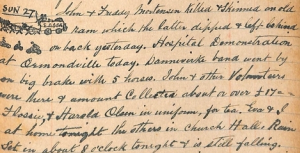 SUN 27
John & Freddy Mortensen killed & skinned an old
ram which the latter dipped & left behind
on back yesterday. Hospital Demonstration
at Ormondville today. Dannevirke band went by
on big brake with 5 horses. John & other Volunteers
were here & amount Collected about or over £17–
Flossie & Harold Olsen in uniform, for tea. Eva & I
at home tonight the others in Church Hall. Rain
Set in about 8 o'clock tonight & is still falling.